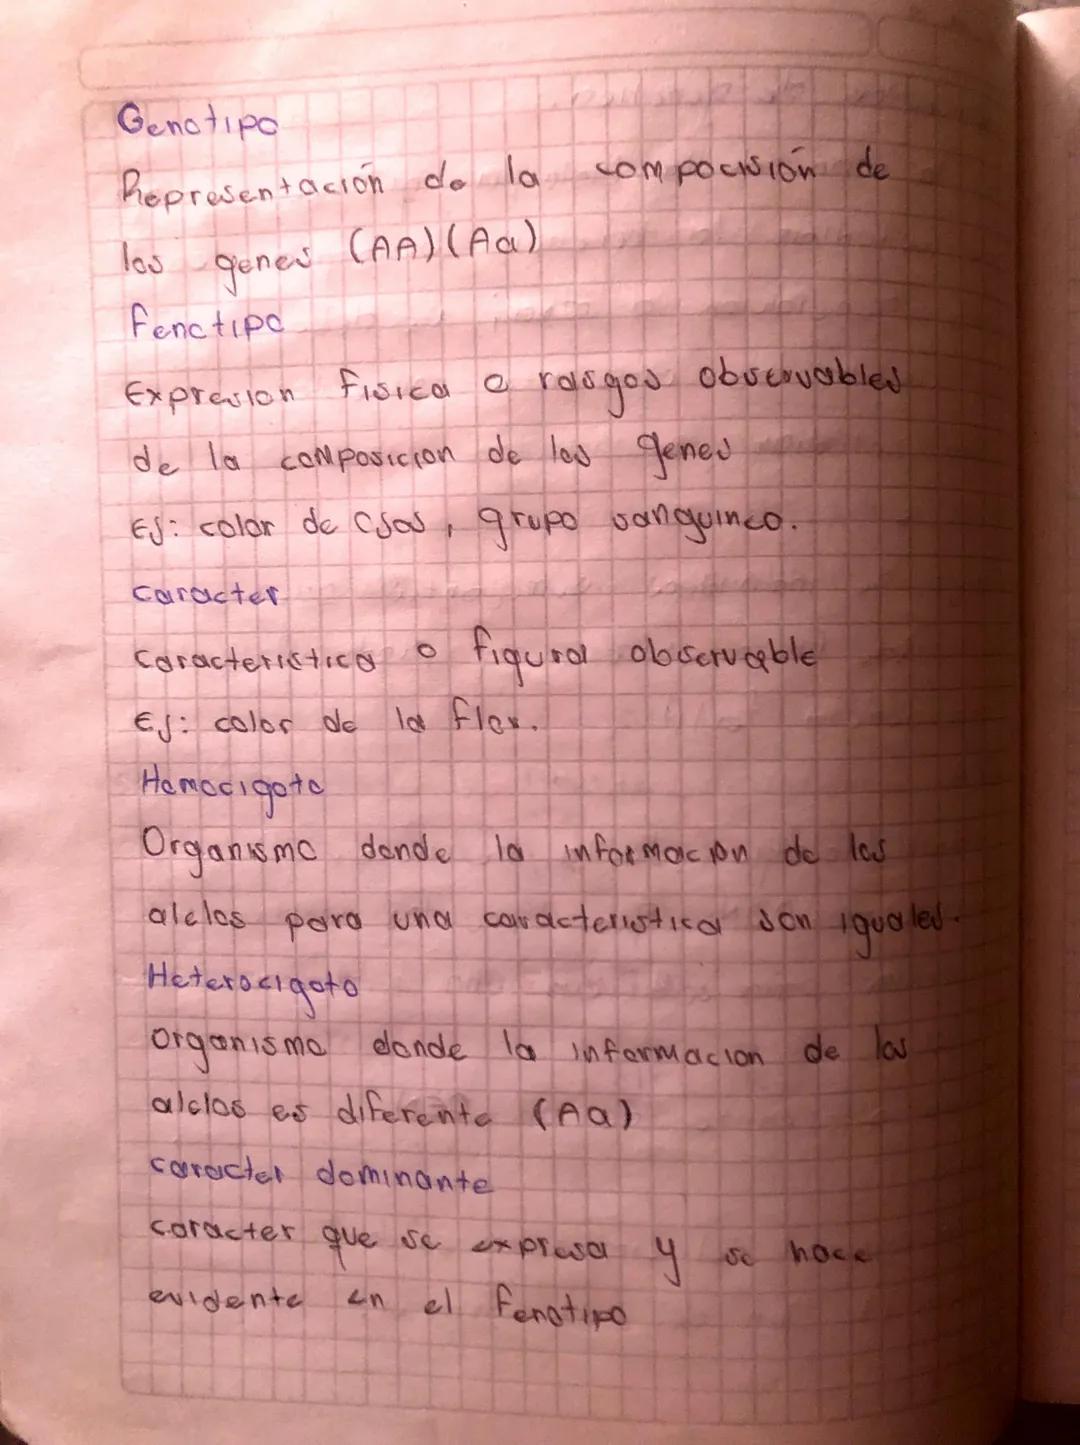 Genotipo
Representación de la compocisión de
los genes (AA)(Aa)
Fenotipo
Expresion Fisica o rasgos observables
de la composicion de los genes
Ej: color de ojos, grupo sanguineo.
caracter
caracteristica o figura observable
Ej: color de la flor.
Homocigoto
Organismo donde la informacion de los
alelos para una caracteristica son iguales.
Heterocigoto
organismo donde la informacion de los
alelos es diferente (Aa)
caracter dominante
caracter que se expresa y se hace
evidente en el fenotipo